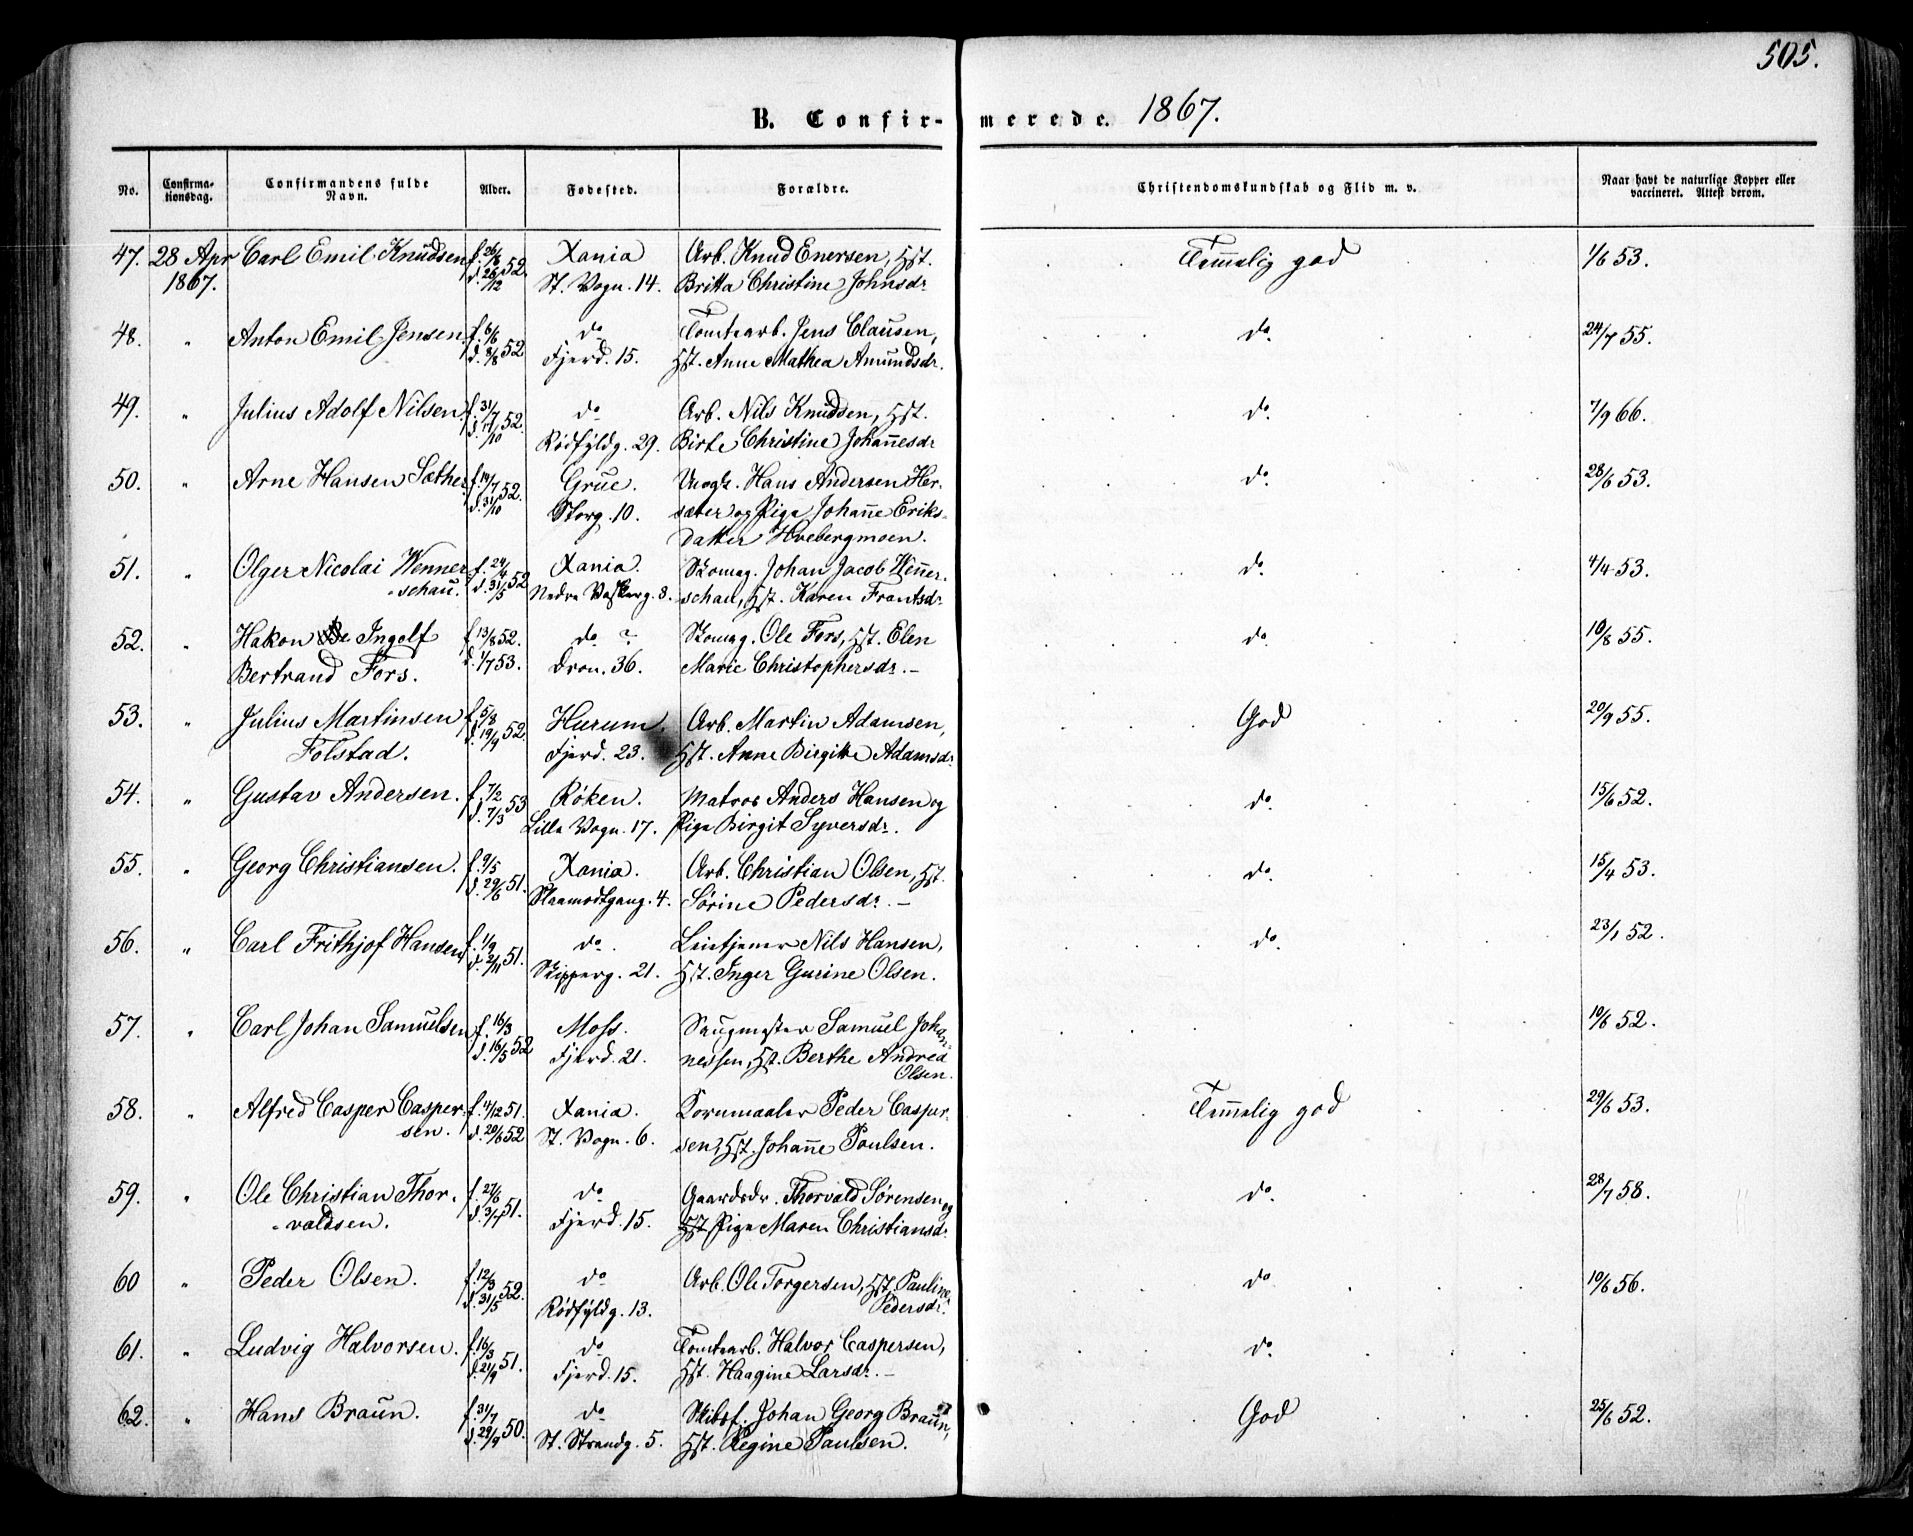 505.
B. Confirmerede. 1867.
No. Confirmationsdag. Confirmandens fulde Navn. Alder. Fødested. Forældre. Christendomskundskab og Flid m. v. Naar havt de naturlige Kopper eller vaccineret. Attest derom.
47. 28 Apr Carl Emil Knudsen f. 26/8 52. Xania Arb. Knud Enersen, Hst. Temmelig god 1/6 53.
1867. d. 26/12 St. Vogn. 14. Britta Christine Johnsdr
48. " Anton Emil Jensen. f. 6/6 52 do Tomtearb. Jens Clausen, do. 24/7 55.
d. 8/8 Fjerd. 15. Hst. Anne Mathea Amundsdr.
49. " Julius Adolf Nilsen f. 31/7 52. do Arb. Nils Knudsen, Hst. do. 7/9 66.
d. 17/10 Rødfyldg. 29. Birte Christine Johannesdr
50. " Arne Hansen Sæther f. 14/7 52. Grue. Ungk. Hans Andersen Her- do. 28/6 53.
d. 31/10 Storg. 10. sæter og Pige Johanne Eriks-
datter Hvebergmoen.
51. " Olger Nicolai Wenner- f. 24/4 52 Xania. Skomag. Johan Jacob Wenner- do. 4/4 53.
schau. d. 31/5 Nedre Vaskerg. 8. schau, Hst. Karen Frantsdr.
52. " Hakon Ingolf f. 13/8 52. do ? Skomag. Ole Fors, Hst. Elen do. 10/8 55.
Bertrand Fors. d. 1/7 53. Dron. 36. Marie Christophersdr. —
53. " Julius Martinsen f. 5/8 52. Hurum. Arb. Martin Adamsen, God 20/9 55.
Folstad. d. 19/9 Fjerd. 23. Hst. Anne Birgitte Adamsdr.
54. " Gustav Andersen. f. 7/2 53 Røken. Matros Anders Hansen og do. 15/6 52.
d. 7/3 Lille Vogn. 17. Pige Birgit Syversdr.
55. " Georg Christiansen. f. 9/5 51. Xania. Arb. Christian Olsen, Hst. do. 15/4 53.
d. 29/6 Slaamodtgang. 4. Sørine Pedersdr. —
56. " Carl Frithjof Hansen f. 1/9 51. do. Leietjener Nils Hansen, do. 23/1 52.
d. 2/11 Skipperg. 21. Hst. Inger Gurine Olsen.
57. " Carl Johan Samuelsen f. 16/3 52 Moss. Saugmester Samuel Johan- 10/6 52.
d. 16/5 Fjerd. 21. nessen, Hst. Berthe Andrea
Olsen.
58. " Alfred Casper Casper- f. 4/12 51. Xania. Kornmaaler Peder Casper- Temmelig god 29/6 53.
sen. d. 20/6 52 St. Vogn. 6. sen, Hst. Johanne Paulsen.
59. " Ole Christian Thor- f. 27/6 51. do Gaardsdr. Thorvald Sørensen og do. 28/7 58.
valdsen. d. 3/7 Fjerd. 15. Hst Pige Maren Christiansdr.
60 " Peder Olsen. f. 12/3 52. do Arb. Ole Torgersen, Hst. Pauline do 10/6 56.
d. 31/5 Rødfyldg. 13. Pedersdr.
61. " Ludvig Halvorsen. f. 16/3 51. do Tomtearb. Halvor Caspersen, do.
d. 21/9 Fjerd. 15. Hst. Haagine Larsdr. —
62. " Hans Braun. f. 31/7 50. do Skibsf. Johan Georg Braun, God 25/6 52.
d. 29/9 St. Strandg. 5. Hst. Regine Paulsen.